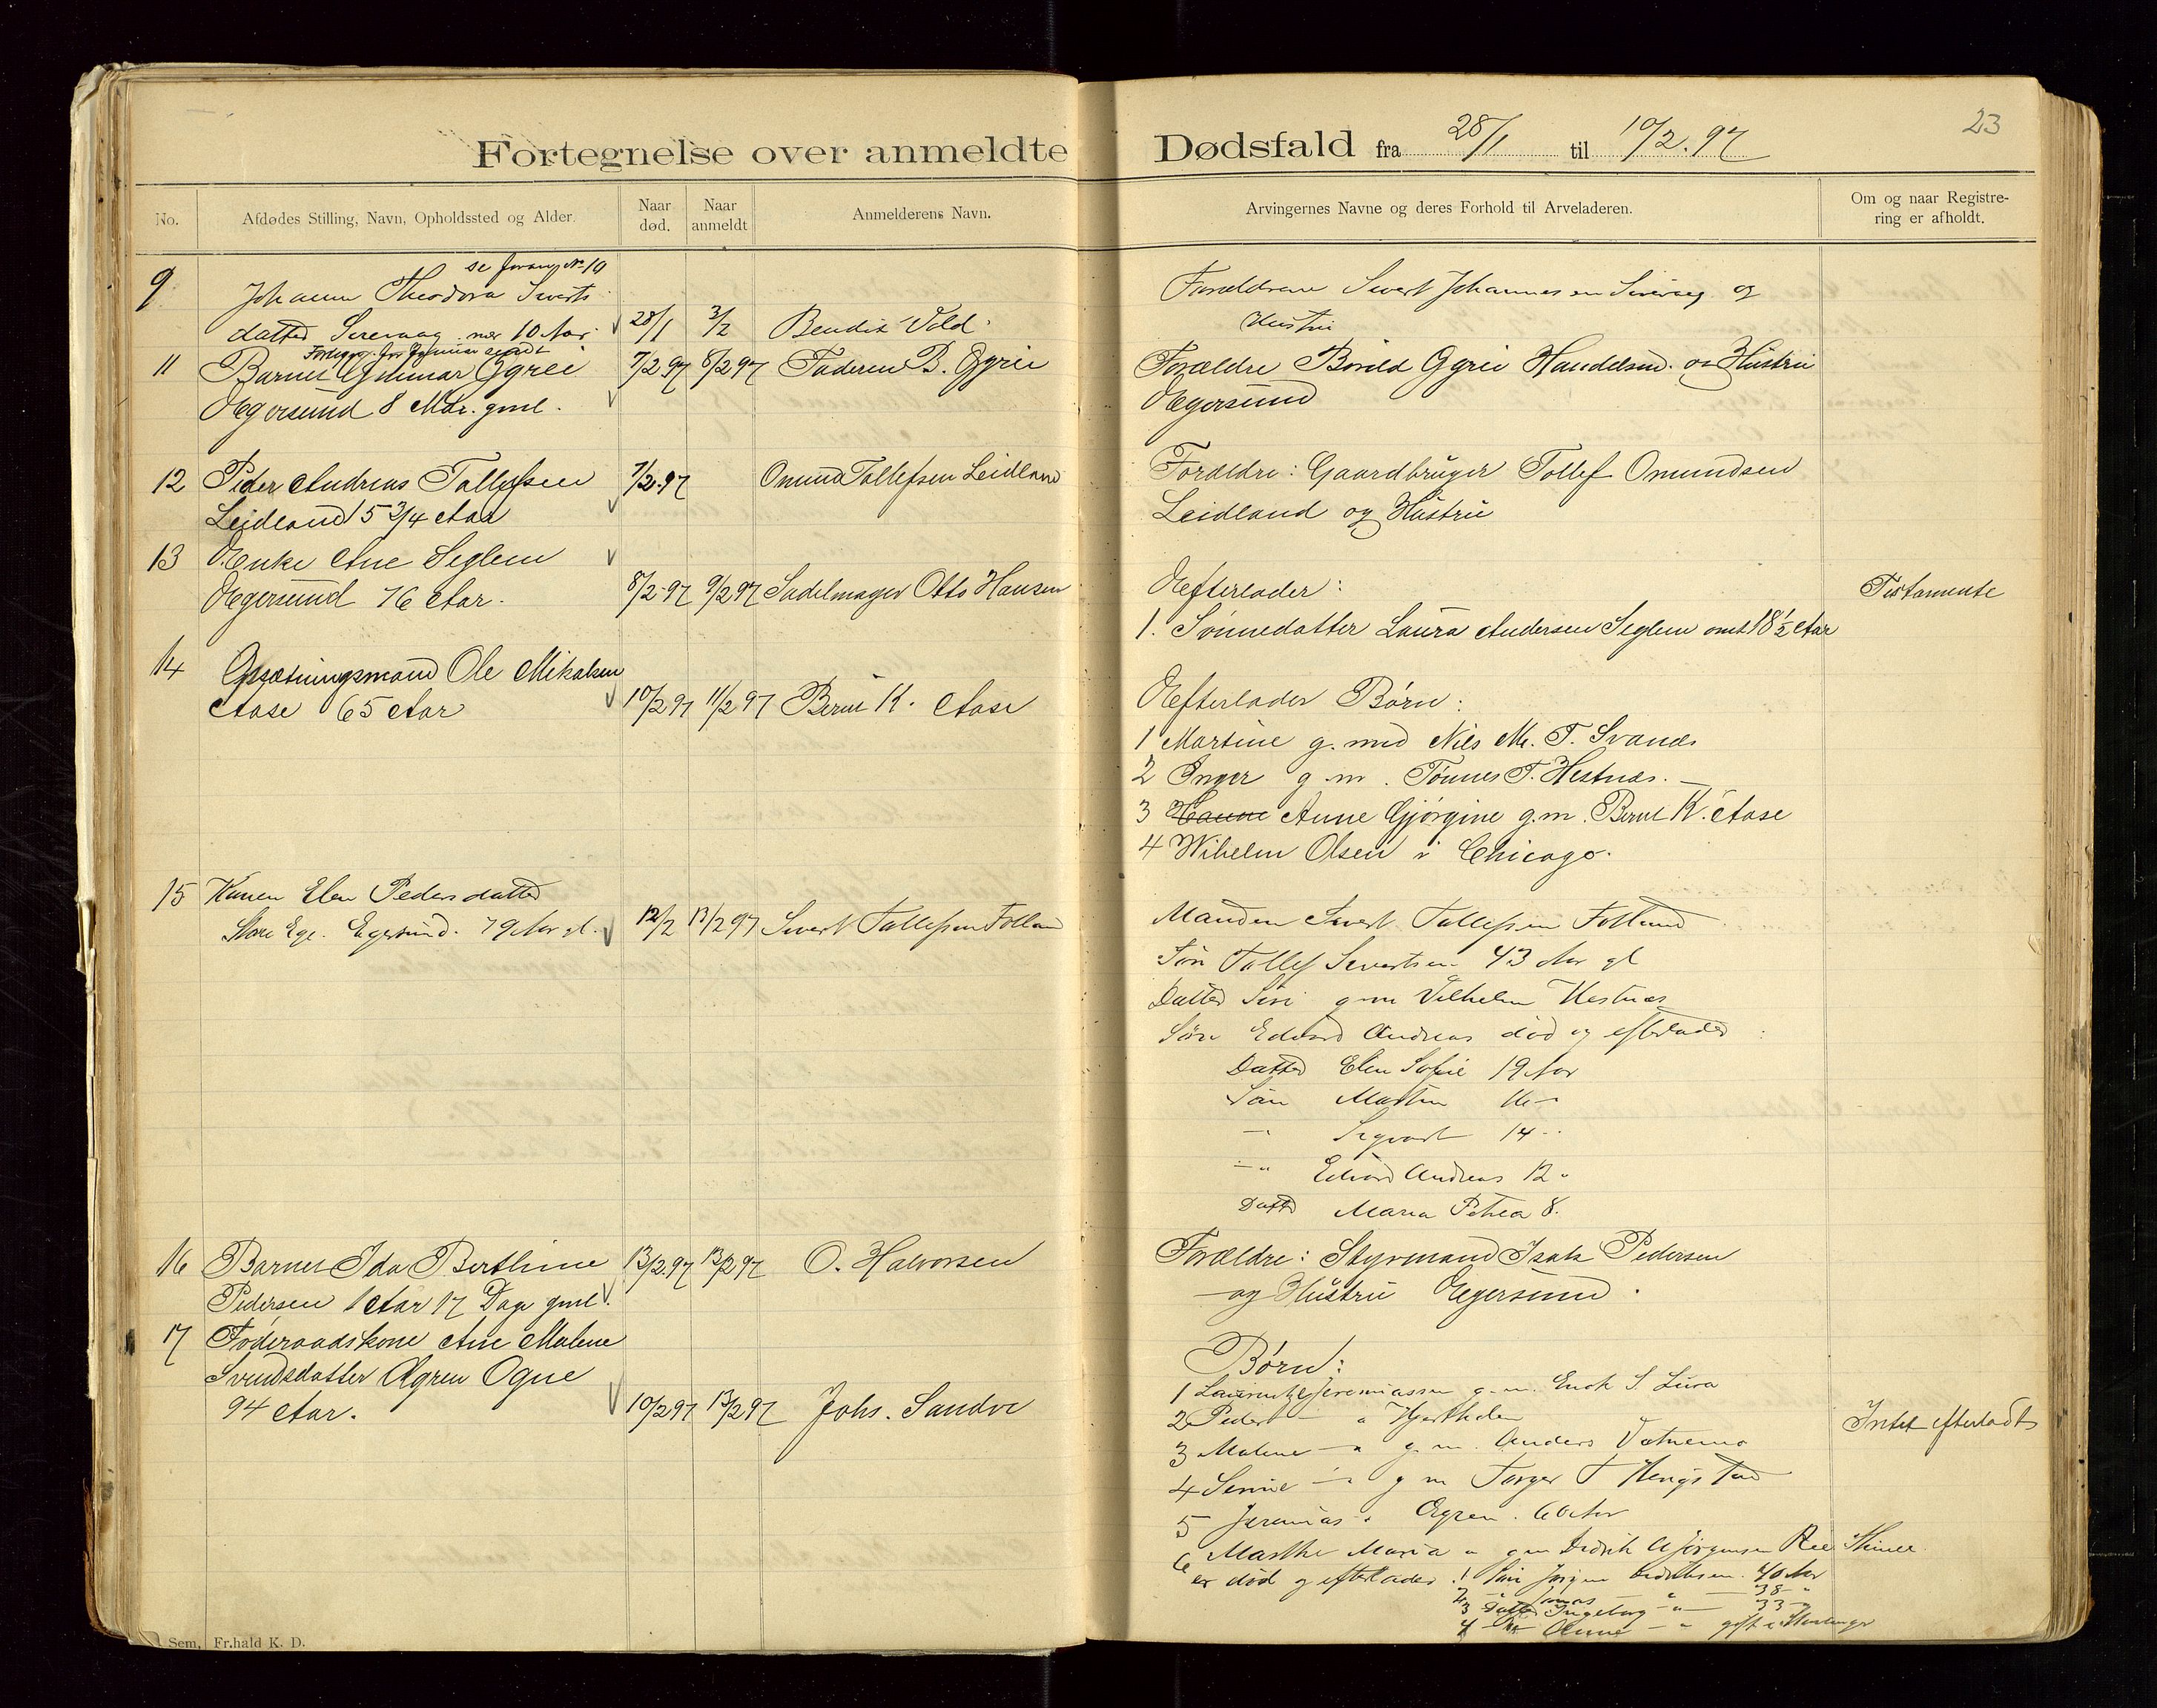 23
Fortegnelse over anmeldte Dødsfald fra 28/1 til 10/2. 97
No.
Afdødes Stilling, Navn, Opholdssted og Alder.
Naar død.
Naar anmeldt
Anmelderens Navn.
Arvingernes Navne og deres Forhold til Arveladeren.
Om og naar Registre-
ring er afholdt.
se No 10
9 Johanne Theodora Siverts
datter Sirevaag nær 10 Aar. 28/1 3/2 Bendix Vold
Forældrene Sivert Johannesen Sirevaag og
Hustru
11 Barnet Gunnar Ggrei 7/2 97 8/2 97 Faderen B. Ggrei
Egersund 8 Mdr. gml.
Forældre Bovild Ggrei Handelsmd. og Hustru
Egersund
12 Peder Andreas Tollefsen 7/2.97 Omund Tollefsen Leidland
Leidland 5 3/4 Aar
Forældre: Gaardbruger Tollef Omundsen
Leidland og Hustru
13 Enke Ane Seglem
Egersund 76 Aar. 8/2.97 9/2 97 Sadelmager Otto Hansen
Efterlader: Testamente
1. Sønnedatter Laura Andersen Seglem omt 18 1/2 Aar
14 Opsætningsmand Ole Mikalsen
Aase 65 Aar 10/2 97 11/2 97 Bernt K. Aase
Efterlader Børn:
1 Martine g. med Nils M. T. Svanes
2 Inger g. m. Tønnes T. Hestnes.
3 Hanne Anne Gjørgine g.m. Bernt K. Aase
4 Wihelm Olsen i Chicago.
15 Konen Elen Pedersdatter
Store Ege. Egersund. 79 Aar gl. 12/2 13/2 97 Sivert Tollefsen Folland
Manden Sivert Tollefsen Fotland
Søn Tollef Sivertsen 43 Aar gl
Datter Siri g m Vilhelm Hestnes
Søn Edvard Andreas død og efterlader:
Datter Elen Sofie 19 Aar
Søn Martin 16 -
- Sigvart 14 -
- " Edvard Andreas 12 "
Datter Maria Petrea 8.
16 Barnet Ida Berthine 13/2.97 13/2 97 O. Halvorsen
Pedersen 1 Aar 17 Dage gml.
Forældre: Styrmand Isak Pedersen
og Hustru Egersund.
17 Føderaadskone Ane Malene
Svendsdatter Ægren Ogne
94 Aar. 10/2 97 13/2 97 Johs. Sandve
Børn:
1 Jeremiassen g. m. Enok S. Lura
2 Peder - " Intet efterladt
3 Malene - " g. m. Anders
4 - " g m Torger T
5 Jeremias " Ægren. 60 Aar
6 Marthe Maria " g m Didrik A Jørgensen Ree Thime
er død og efterlader: 1 Søn Jørgen Didriksen. 40 Aar
2 - " Jonas - " - 38 - "
3 Datter Ingeborg - " - 33 - "
4 Anne - " gift i Stavanger
Sem, Fr.hald K. D.